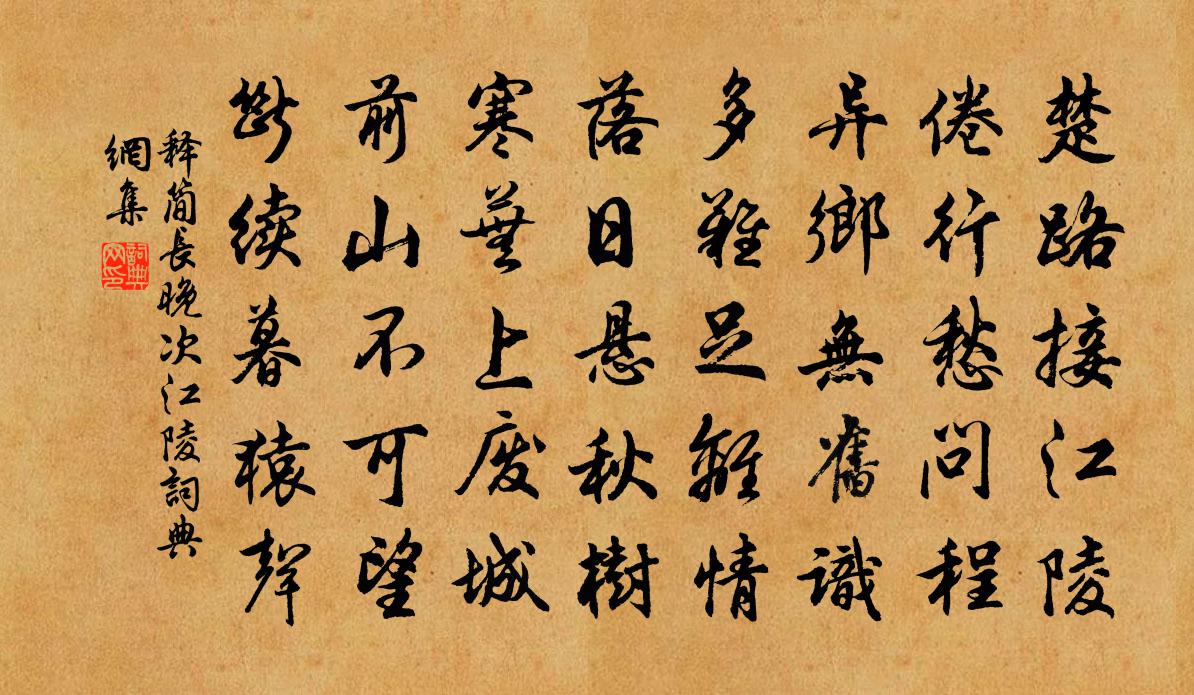 楚路接江陵
倦行愁问程
异鄉無舊識
多難足離情
落日悬秋樹
寒蕪上废城
前山不可望
斷续暮猿聲
释简長晚次江陵詞典
網集
詞典
网印